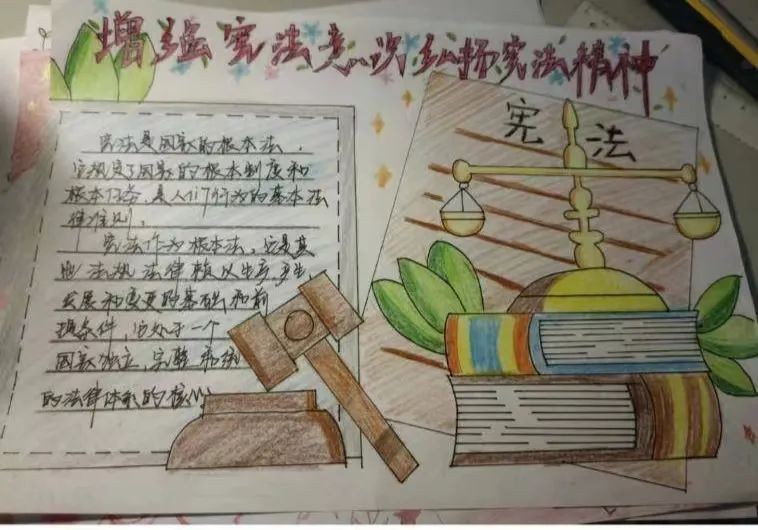 增强宪法意识弘扬宪法精神
宪法是国家的根本法，
它规定了国家的根本制度和
根本任务，是人们行为的基本法
律准则。
宪法作为根本法，它是其
他法规法律赖以生存，产生，
发展和变更的基础和前
提条件，它处于一个
国家独立，完整和
的法律体系的核心
宪法